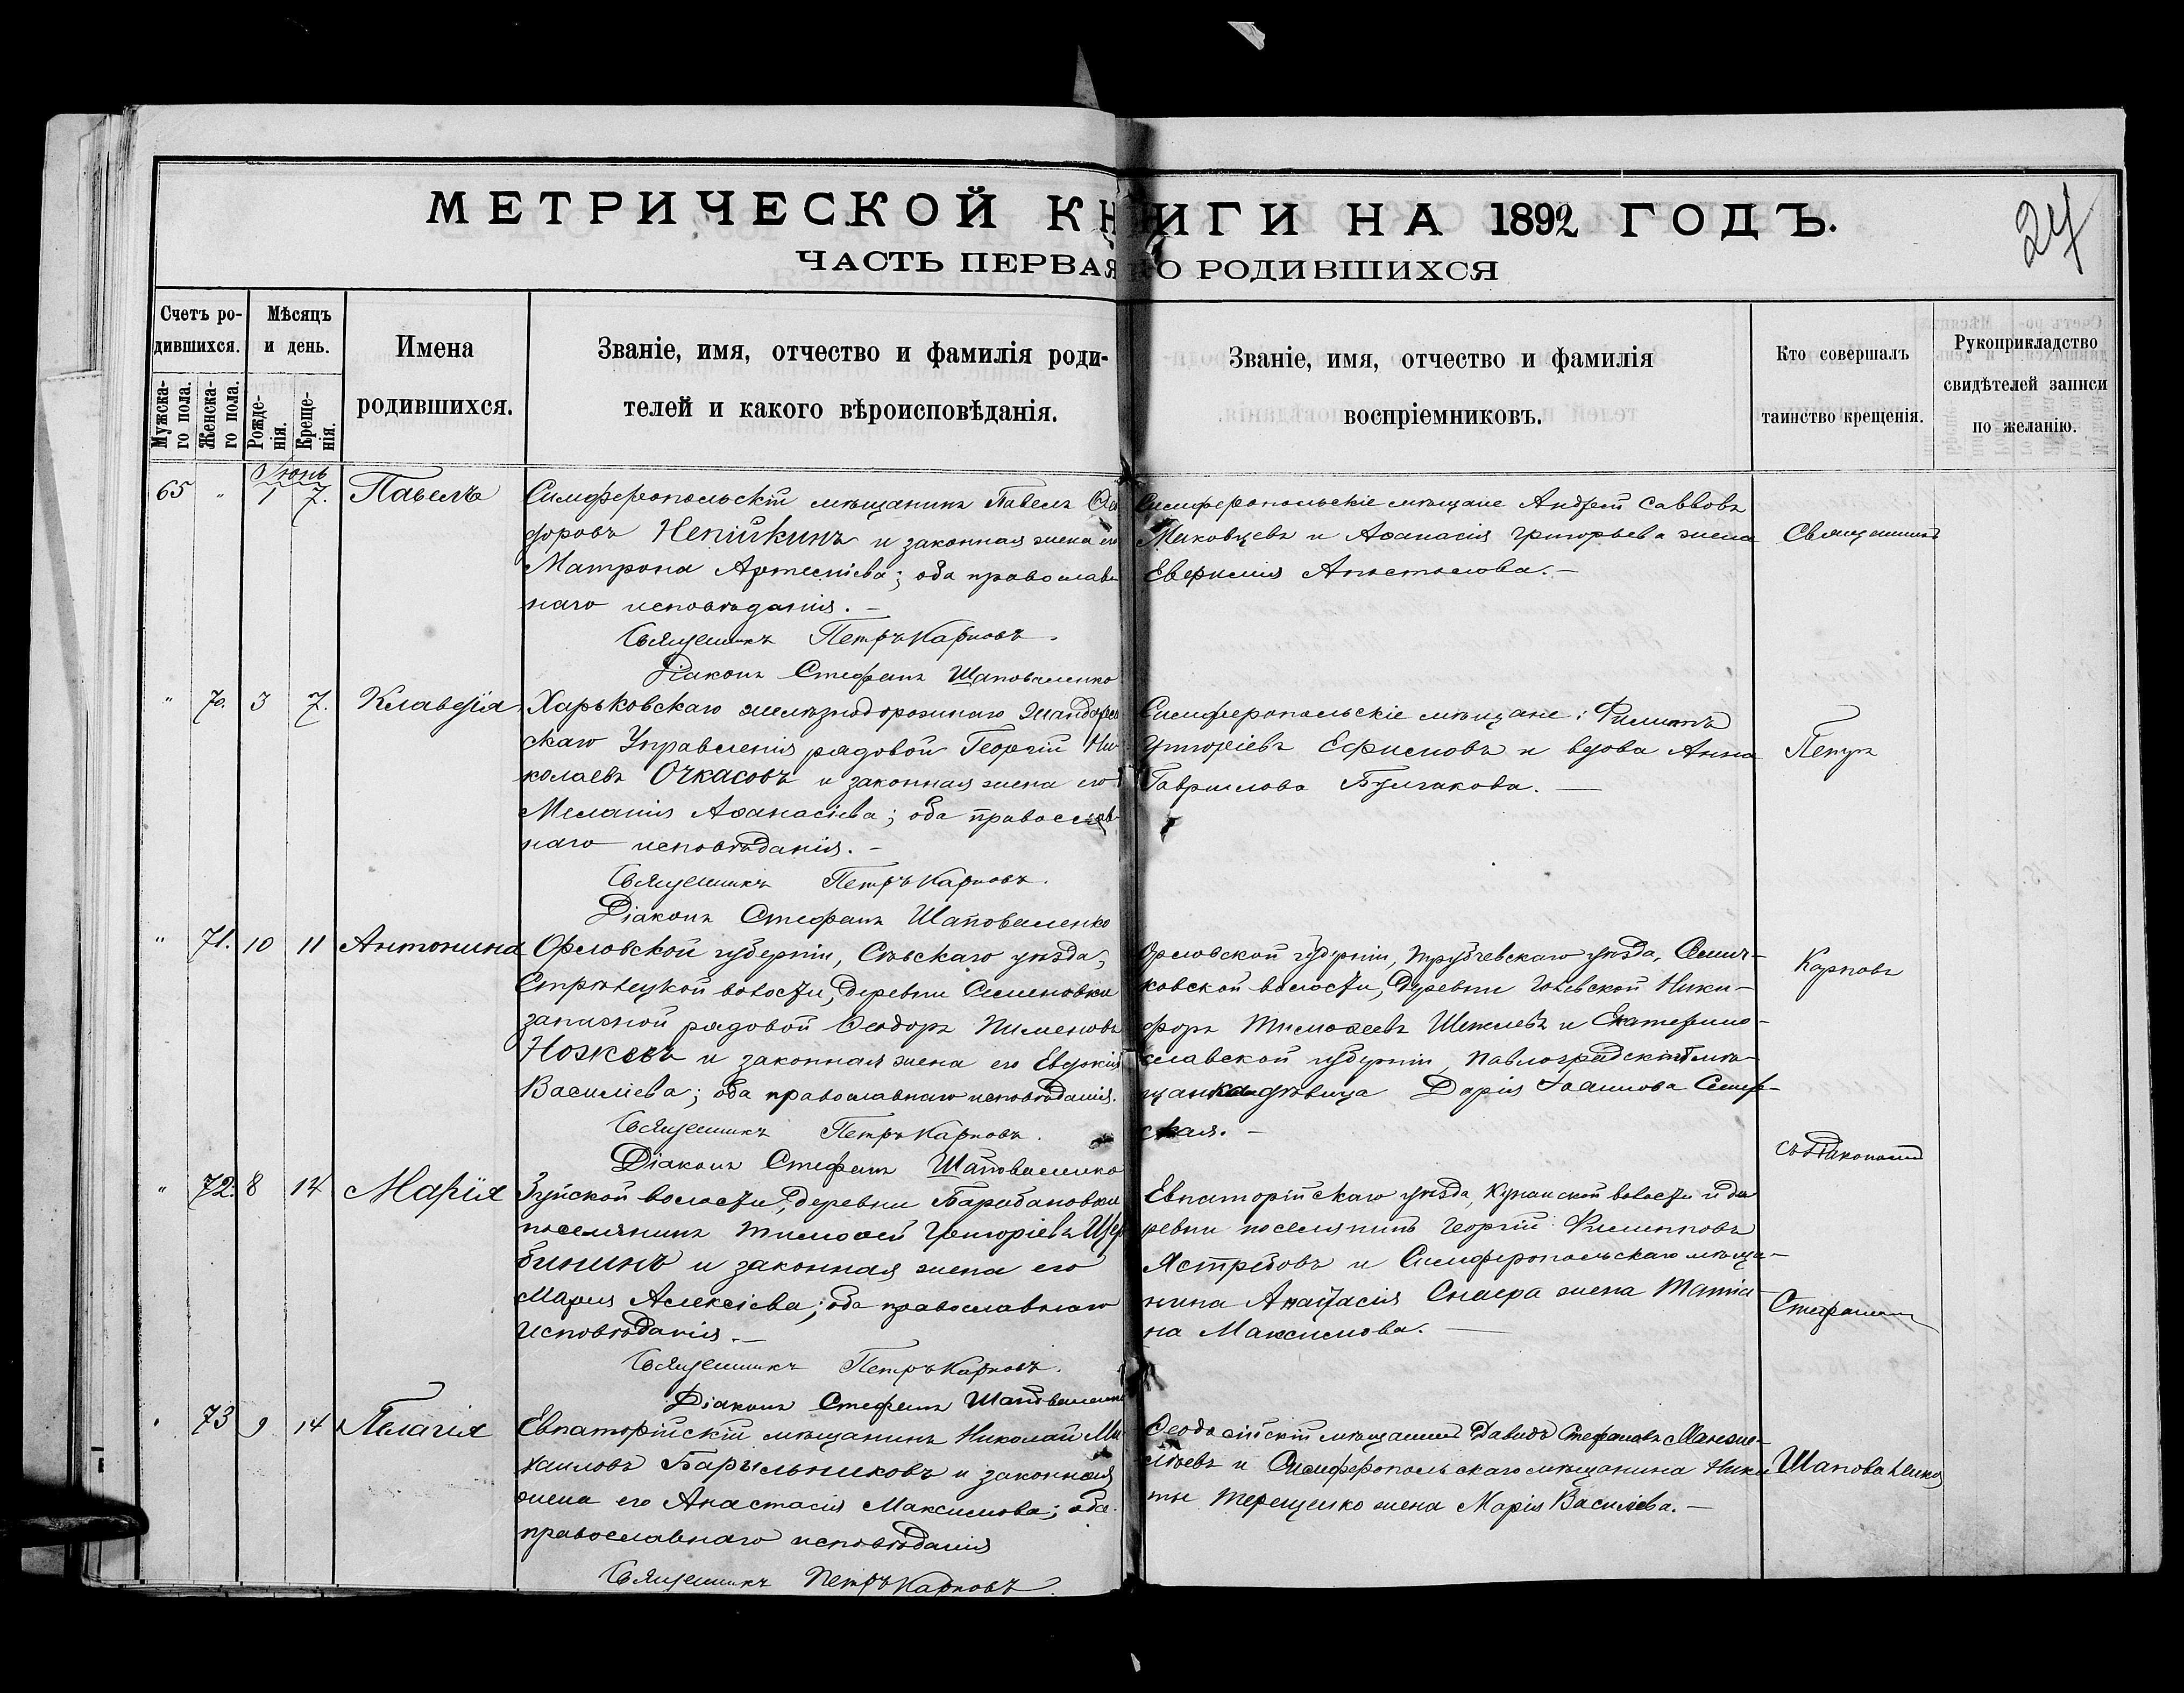 МЕТРИЧЕСКОЙ КНИГИ НА 1892 ГОДЪ.
24
ЧАСТЬ ПЕРВАЯ О РОДИВШИХСЯ
Счетъ ро-
дившихся.
Мужска-
го пола.
Женска-
го пола.
Мѣсяцъ
и день.
Рожде-
нія.
Креще-
нія.
Имена
родившихся.
Званіе, имя, отчество и фамилія роди-
телей и какого вѣроисповѣданія.
Званіе, имя, отчество и фамилія
воспріемниковъ.
Кто совершалъ
таинство крещенія.
Рукоприкладство
свидѣтелей записи
по желанію.
Іюнь
65 " 1 7. Павелъ
Симферопольскій мѣщанинъ Павелъ Ѳео
доровъ Непійкинъ и законная жена его
Матрона Артеміева; оба православ
наго исповѣданія. –
Священникъ Петръ Карповъ.
Діаконъ Стефанъ Шаповаленко
Симферопольскіе мѣщане Андрей Саввовъ
Маковцевъ и Аѳанасія Григорьева жена
Евфимія Апостолова. –
" 70. 3 7. Клавдія
Харьковскаго желѣзнодорожнаго Жандарм
скаго Управленія рядовой Георгій Ни
колаевъ Очкасовъ и законная жена его
Меланія Аѳанасіева; оба православ
наго исповѣданія. –
Священникъ Петръ Карповъ.
Діаконъ Стефанъ Шаповаленко
Симферопольскіе мѣщане: Филиппъ
Григоріевъ Ефимовъ и вдова Анна
Гавриилова Булгакова. –
" 71. 10 11 Антонина
Орловской губерніи, Сѣвскаго уѣзда,
Стрѣлецкой волости, деревни Семеновки
запасной рядовой Ѳеодоръ Пименовъ
Ножкевъ и законная жена его Евдокія
Василіева; оба православнаго исповѣданія.
Священникъ Петръ Карповъ.
Діаконъ Стефанъ Шаповаленко
Орловской губерніи, Трубчевскаго уѣзда, Семеч-
ковской волости, деревни Ники-
форъ Тимоѳеевъ и Екатерино-
славской губерніи, Павлоградская мѣ-
щанка дѣвица Дарія Іоаннова
ская. –
" 72. 8 14 Марія
Зуйской волости, деревни Барабановки
поселянинъ Тимоѳей Григоріевъ Щер
бининъ и законная жена его
Марія Алексіева; оба православнаго
исповѣданія. –
Священникъ Петръ Карповъ.
Діаконъ Стефанъ Шаповаленко
Евпаторійскаго уѣзда, волости и де
ревни поселянинъ Георгій Филипповъ
Ястребовъ и Симферопольскаго мѣща-
нина Анастасія жена Татіа-
на Максимова. –
" 73 9 14 Пелагія
Евпаторійскій мѣщанинъ Николай Ми
хаиловъ Барыльниковъ и законная
жена его Анастасія Максимова; оба
православнаго исповѣданія
Священникъ Петръ Карповъ.
Ѳеодосійскій мѣщанинъ Давидъ Стефановъ
и Симферопольскаго мѣщанина Ники
ты Терещенко жена Марія Василіева. –
Священникъ
Петръ
Карповъ
съ Діакономъ
Стефаномъ
Шаповаленко